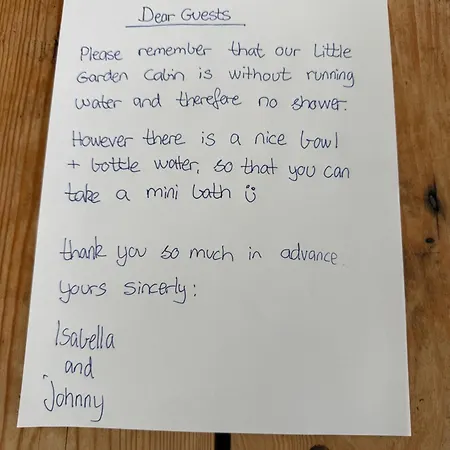 Dear Guests
Please remember that our Little
Garden Cabin is without running
water and therefore no shower.
However there is a nice bowl
+ bottle water, so that you can
take a mini bath ☺
thank you so much in advance.
yours sincerly:
Isabella
and
Johnny